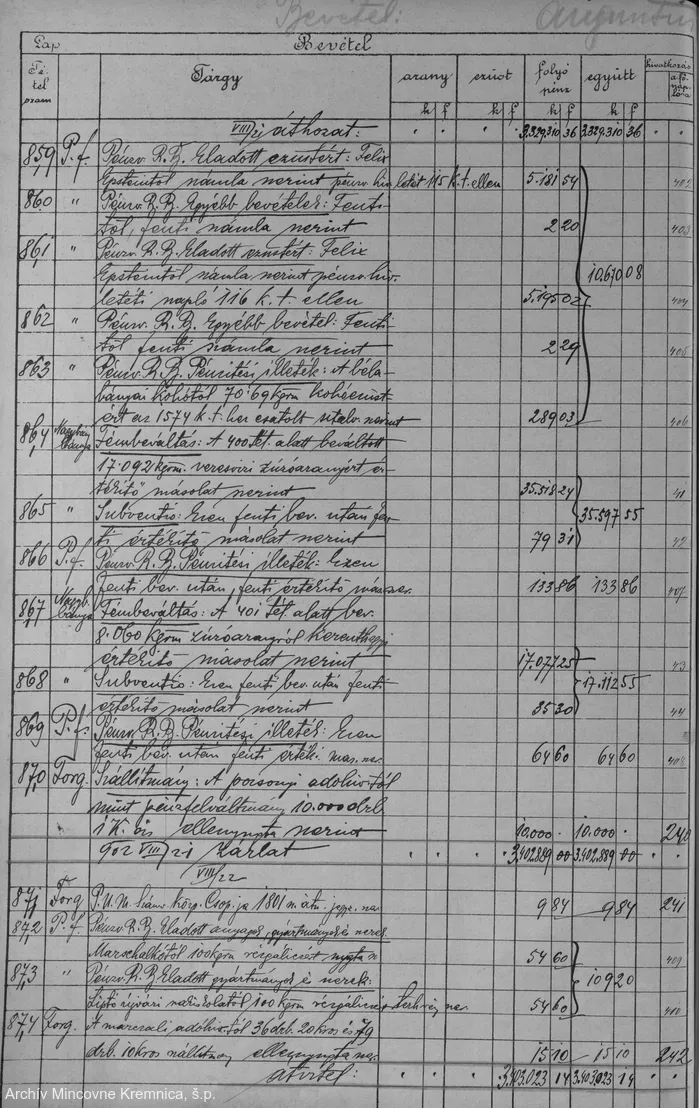 Bevétel: Augusztus
Lap Bevétel
Tétel szám Tárgy arany ezüst folyó pénz együtt hivatkozás a fő naplóra
k f k f k f
VIII/21 áthozat: 3.329.310 36 3.329.310 36
859 P.f. Pénzv. R. B. Eladott ezüstért: Felix
Epsteintől számla szerint pénzv. hiv. letét 115 k.t. ellen 5.181 54 402
860 " Pénzv. R. B. Egyébb bevételek: Fenti-
től, fenti számla szerint 2 20 403
861 " Pénzv. R. B. Eladott ezüstért: Felix
Epsteintől számla szerint pénzv. hiv. 10.670 08
letéti napló 116 k.t. ellen 5.195 02 404
862 " Pénzv. R. B. Egyébb bevétel: Fenti-
től fenti számla szerint 2 29 405
863 " Pénzv. R. B. Pénzítési illeték: A béla-
bányai kohótól 70.69 kgrm kohóezüst-
ért az 1574 k.t. hez csatolt szerint 289 03 406
864 Nagybánya Fémbeváltás: A 400 tét. alatt beváltott
17.092 kgrm. veresvizi zúzóaranyért ér-
tékítő másolat szerint 35.518 24 41
865 " Subventio: Ezen fenti bev. után fen-
ti értékítő másolat szerint 79 31 35.597 55 42
866 P.f. Pénzv. R. B. Pénzítési illeték: Ezen
fenti bev. után, fenti értékítő más. szer. 133 86 133 86 407
867 Nagybánya Fémbeváltás: A 401 tét. alatt bev.
8.060 kgrm zúzóaranyról kereszthegyi
értékítő másolat szerint 17.077 25 43
868 " Subventio: Ezen fenti bev. után fenti 17.112 55
értékítő másolat szerint 35 30 44
869 P.f. Pénzv. R. B. Pénzítési illeték: Ezen
fenti bev. után fenti érték. mas. sz. 64 60 64 60 408
870 Forg. Szállítmány: A pozsonyi adóhiv. tól
mint pénzfelváltmány 10.000 drb
1 K. ellennyugta szerint 10.000 10.000 240
902 VIII/21 Zárlat 3.402.889 00 3.402.889 00
VIII/22
871 Forg P.Ü.M. Számv. Csop. ja 1801 9 84 9 84 241
872 P.f. Pénzv. R. B. Eladott anyagok, gyártmányok és szerek
Marschalkótól 100 kgrm rézgáliczért nyugta sz 54 60 409
873 " Pénzv. R. B. Eladott gyártmányok és szerek: 109 20
100 kgrm rézgáliczért 54 60 410
874 Forg. A marczali adóhiv. tól 36 drb. 20 kros és 79
drb. 10 kros szállítmány ellennyugta sz. 15 10 15 10 242
átvitel: 3.403.023 14 3.403.023 14
Archív Mincovne Kremnica, š.p.